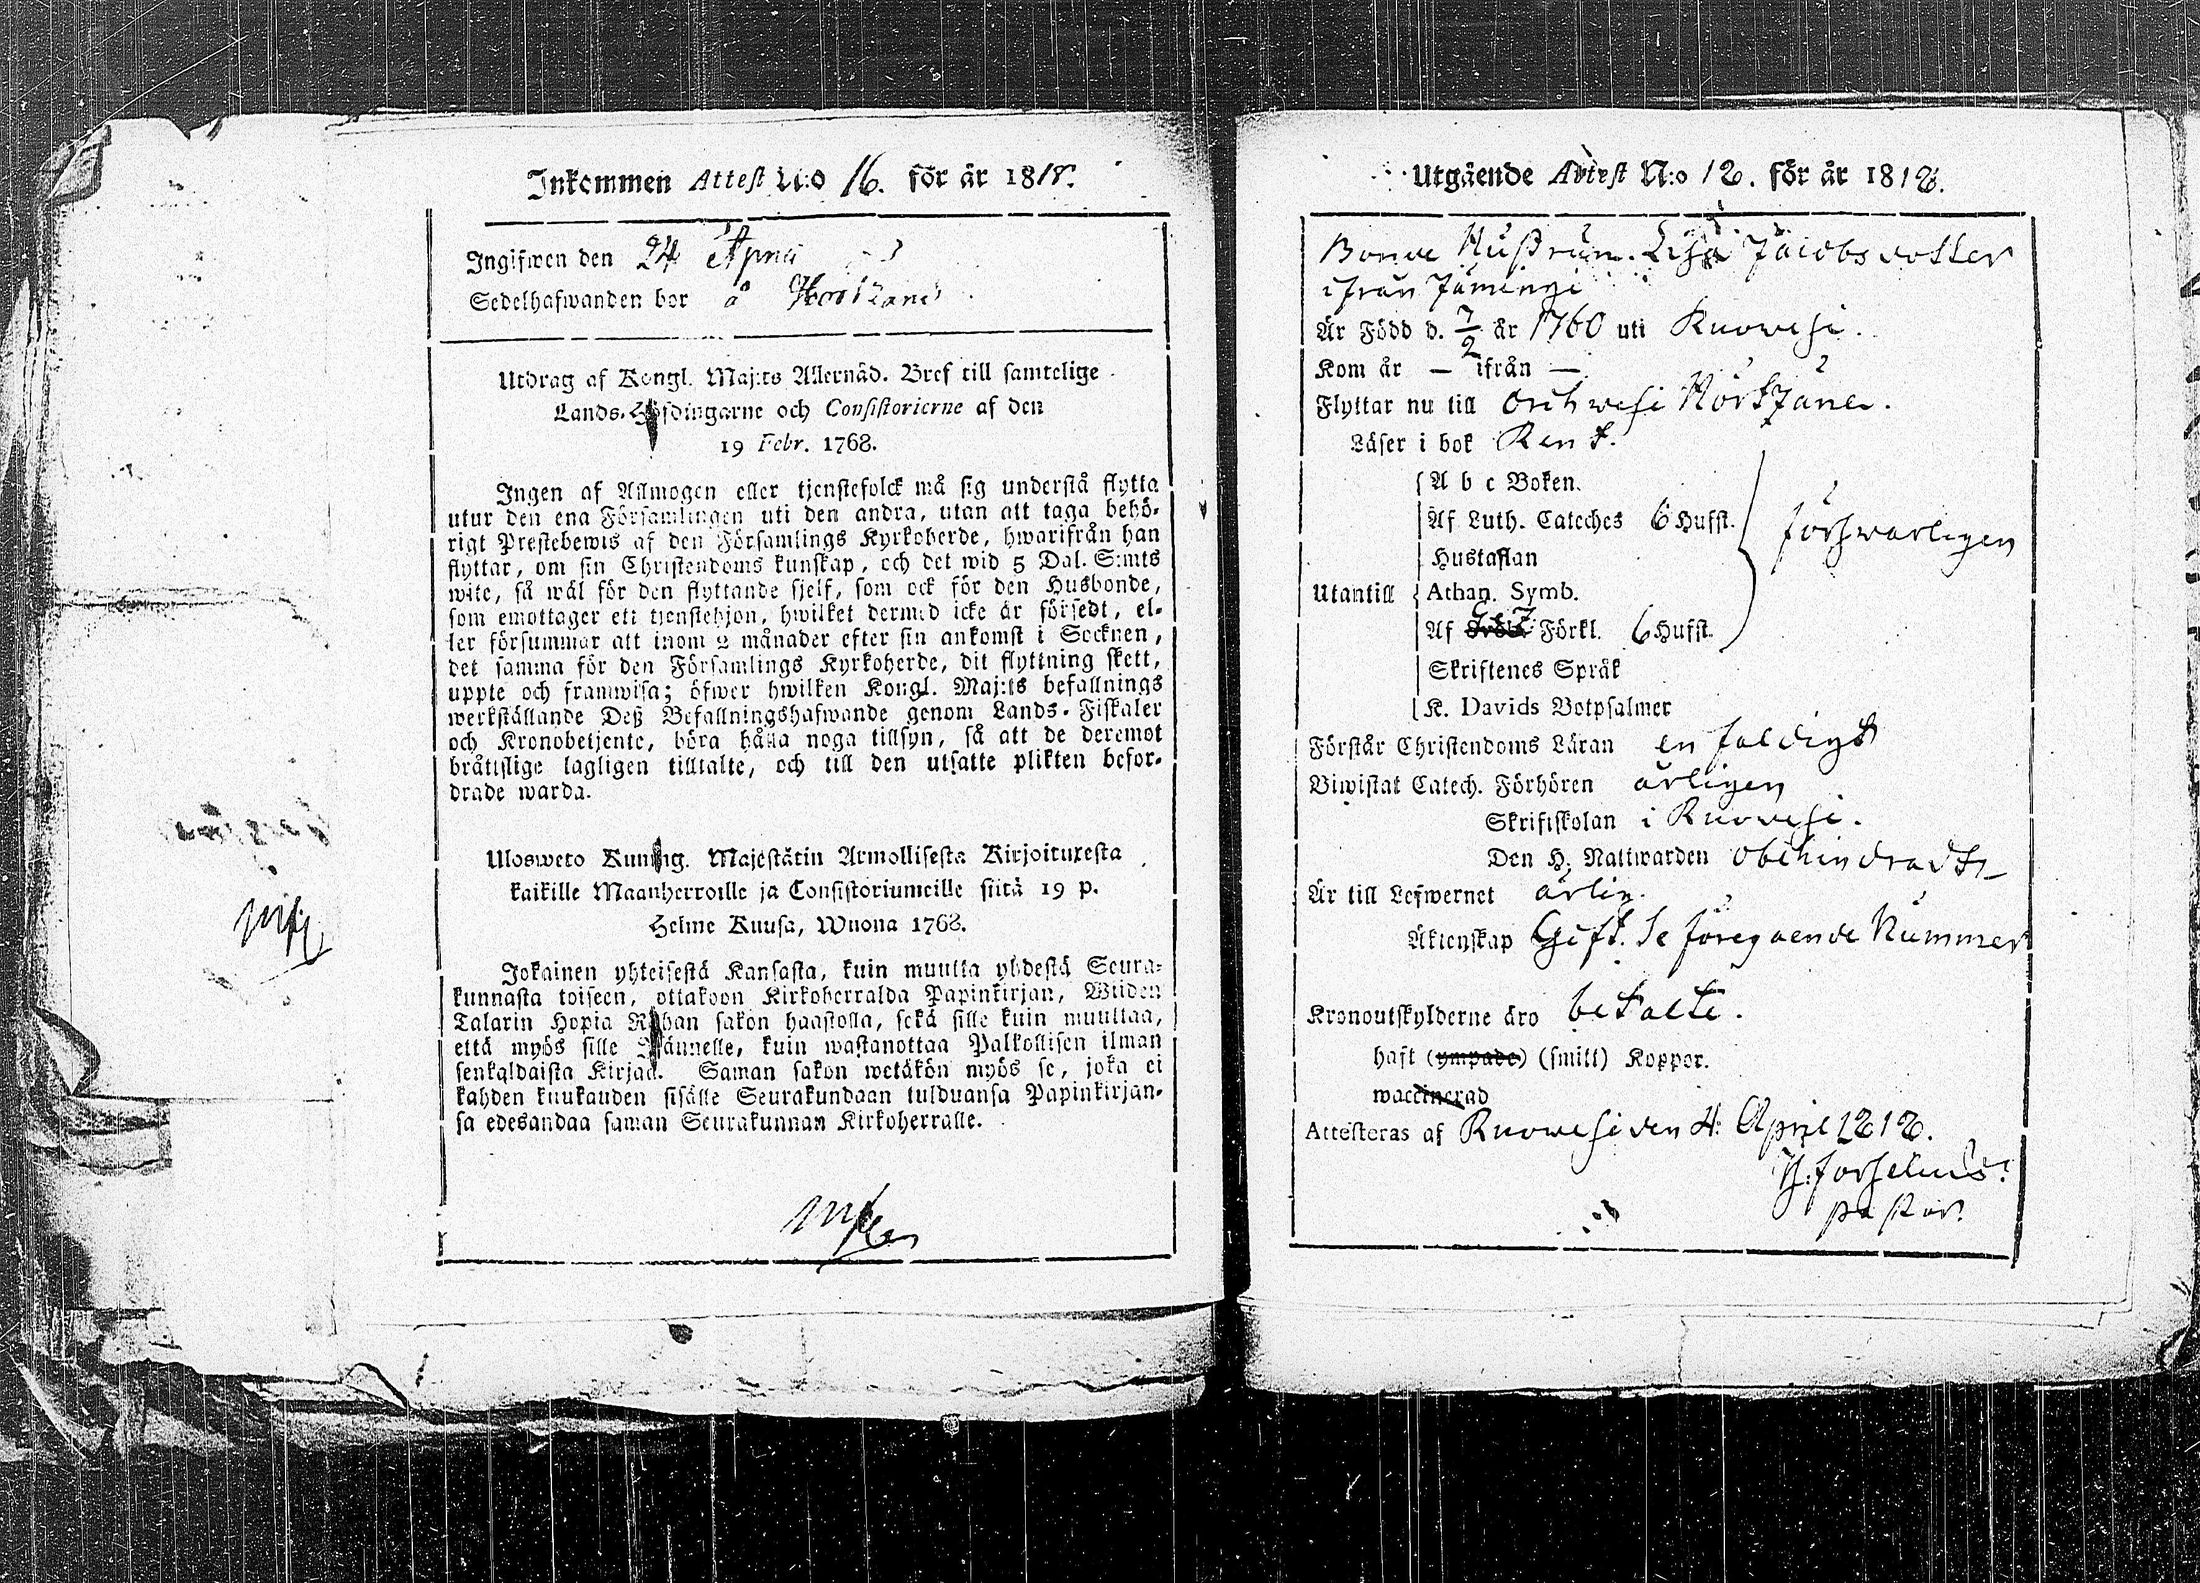 Inkommen Attest N:o 16. för år 1818.
Ingifwen den 24 April
Sedelhafwanden bor å
Utdrag af Kongl. Maj:ts Allernåd. Bref till samtelige
Lands-Höfdingarne och Consistorierne af den
19 Febr. 1768.
Ingen af Allmogen eller tjenstefolck må sig understå flytta
utur den ena Församlingen uti den andra, utan att taga behö-
rigt Prestebewis af den Församlings Kyrkoherde, hwarifrån han
flyttar, om sin Christendoms kunskap, och det wid 5 Dal. S:mts
wite, så wäl för den flyttande sjelf, som ock för den Husbonde,
som emottager ett tjenstehjon, hwilket dermed icke är försedt, el-
ler försummar att inom 2 månader efter sin ankomst i Socknen,
det samma för den Församlings Kyrkoherde, dit flyttning skett,
uppte och framwisa; öfwer hwilken Kongl. Maj:ts befallnings
werkställande Deß Befallningshafwande genom Lands-Fiskaler
och Kronobetjente, böra hålla noga tillsyn, så att de deremot
bråttslige lagligen tilltalte, och till den utsatte plikten befor-
drade warda.
Ulosweto Kuning. Majestätin Armollisesta Kirjoituxesta
kaikille Maanherroille ja Consistoriumeille siitä 19 p.
Helme Kuusa, Wuona 1768.
Jokainen yhteisestä Kansasta, kuin muutta yhdestä Seura-
kunnasta toiseen, ottakoon Kirkoherralda Papinkirjan, Wiiden
Talarin Hopia Rahan sakon haastolla, sekä sille kuin muuttaa,
että myös sille Isännelle, kuin wastanottaa Palkollisen ilman
senkaldaista Kirjaa. Saman sakon wetäkön myös se, joka ei
kahden kuukauden sisälle Seurakundaan tulduansa Papinkirjan-
sa edesandaa saman Seurakunnan Kirkoherralle.
Utgående Attest N:o 12. för år 1818.
Bonde Hustrun. Lisa Jacobsdotter
ifrån Jämingi
Är Född d. 7/2 år 1760 uti Ruowesi.
Kom år — ifrån —
Flyttar nu till Orihwesi
Läser i bok Rent.
A b c Boken.
Af Luth. Cateches 6 Hufst.
Hustaflan
försvarligen
Utantill
Athan. Symb.
Af Förkl. 6 Hufst.
Skriftenes Språk
K. Davids Botpsalmer
Förstår Christendoms Läran enfaldigt
Biwistat Catech. Förhören årligen
Skriftskolan i Ruowesi.
Den H. Nattwarden obehindradt
Är till Lefwernet ärlig.
Äktenskap Gift. Se föregaende Nummer
Kronoutskylderne äro betalte.
haft (ympade) (smitt) Koppor.
waccinerad
Attesteras af Ruowesi den 4: April 1818.
H: Forselius.
Pastor.